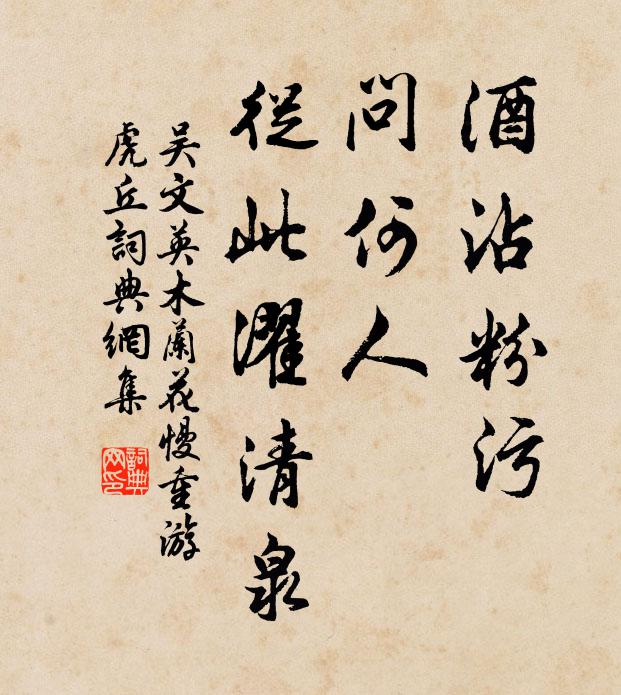 酒沾粉污
問何人
從此濯清泉
吳文英木蘭花慢重游
虎丘詞典網集
詞典網印